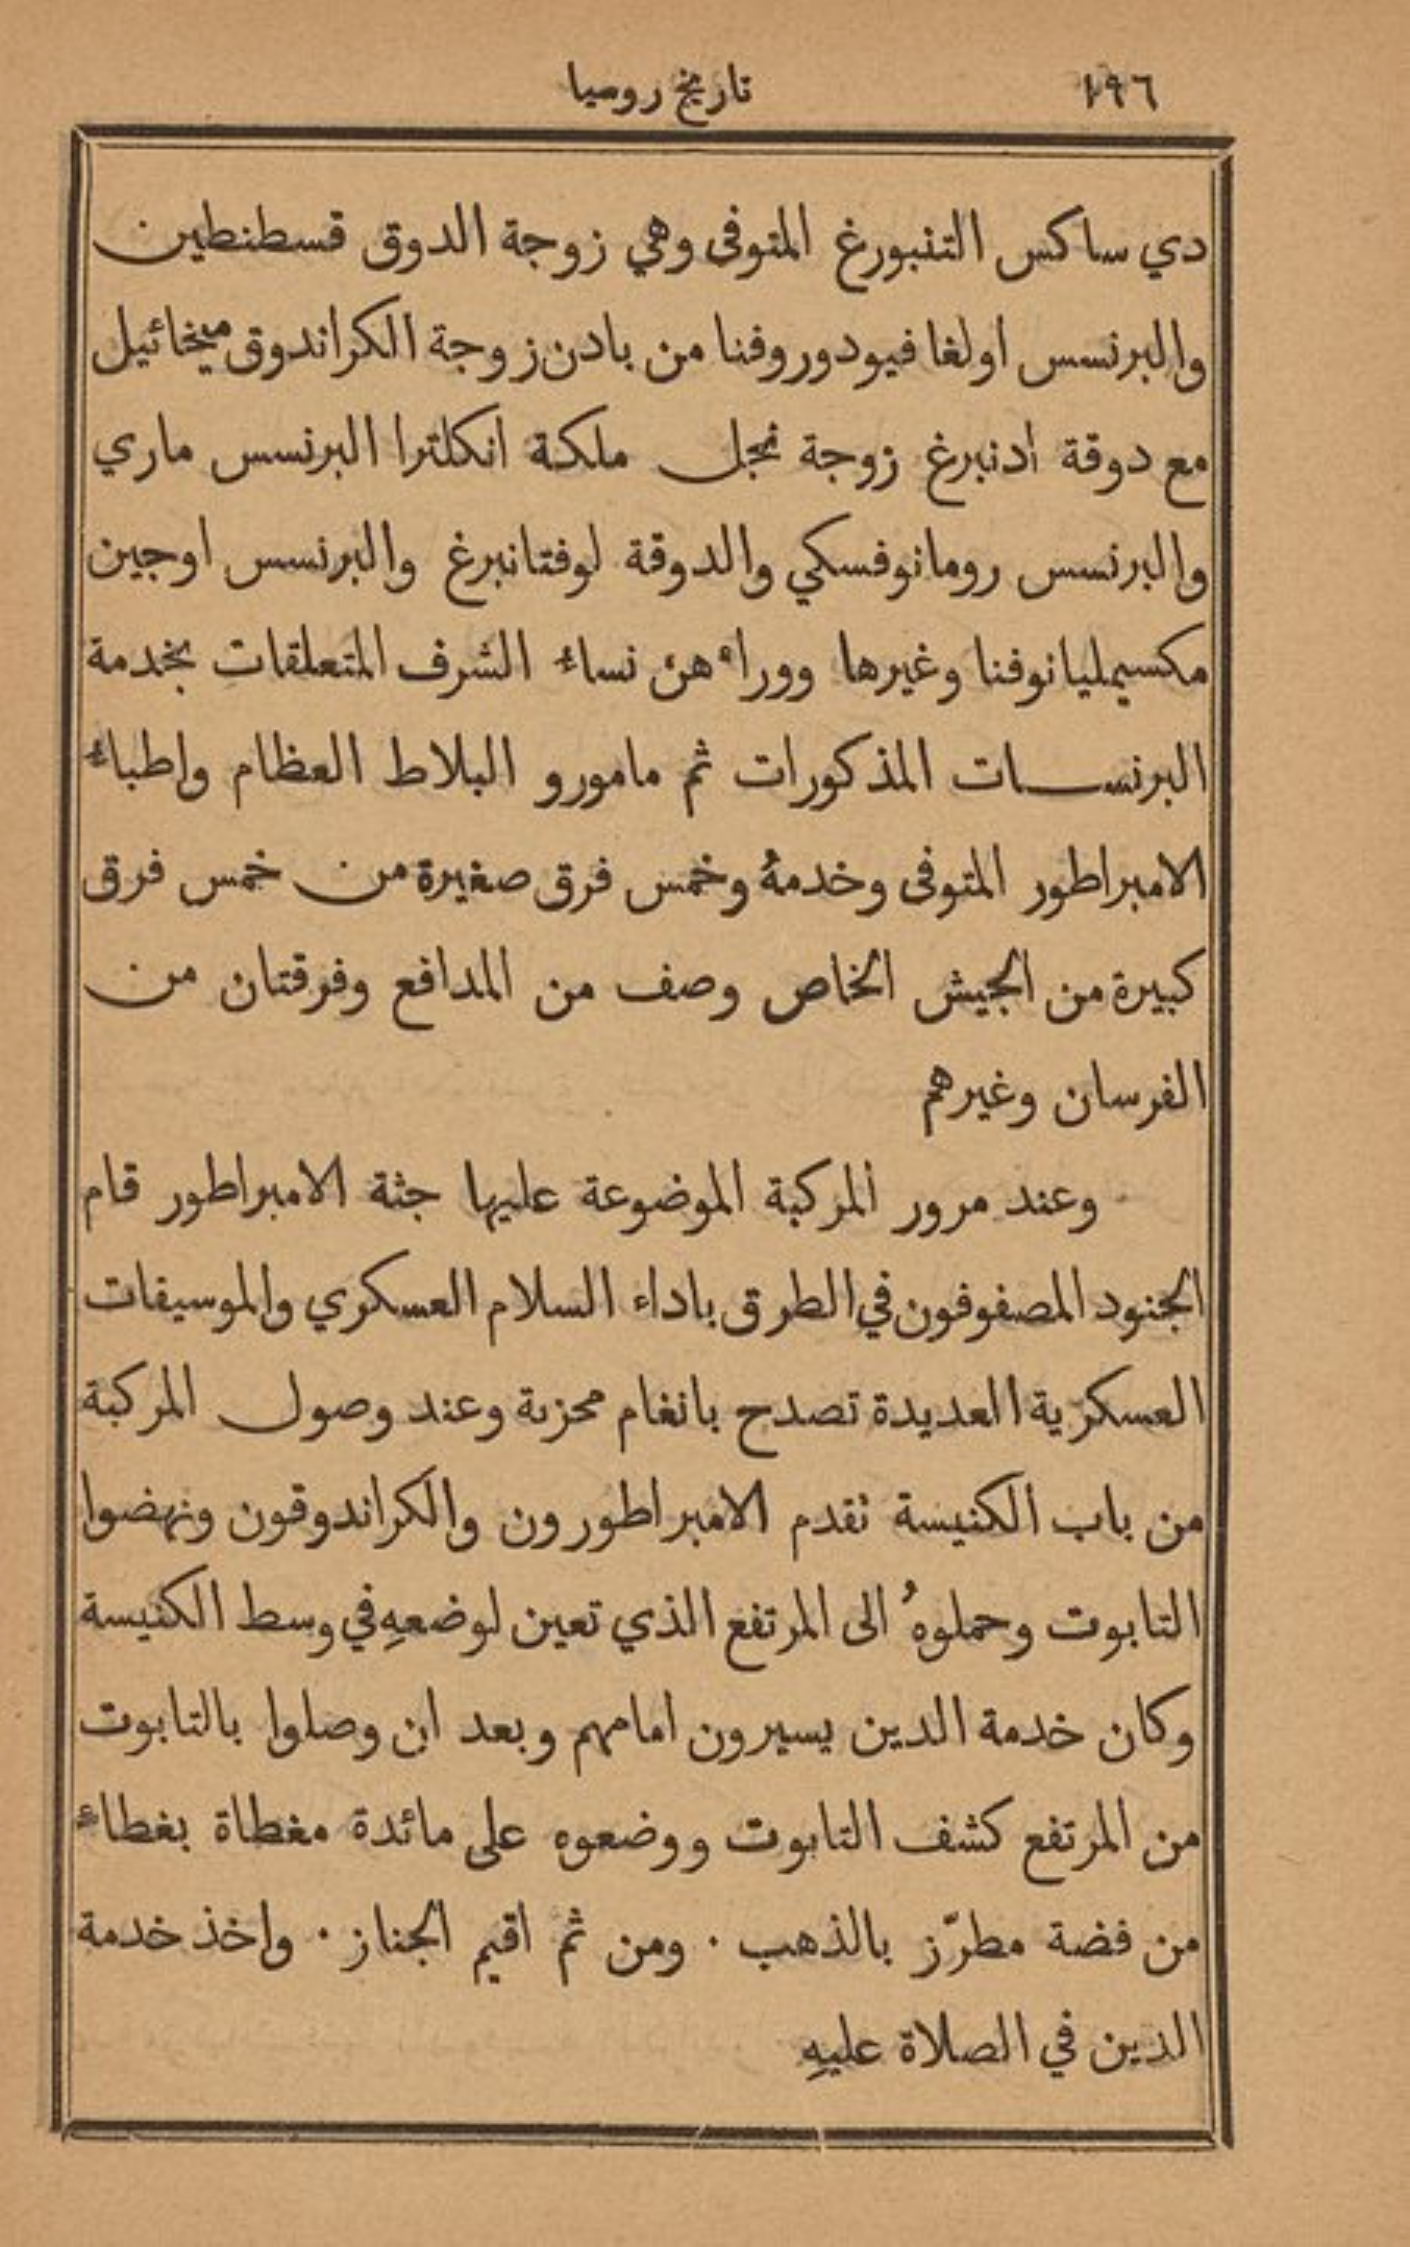 ١٩٦
تاريخ روسيا
دي ساكس التنبورغ المتوفى وهي زوجة الدوق قسطنطين
والبرنسس اولغا فيودوروفنا من بادن زوجة الكراندوق ميخائيل
مع دوقة ادنبرغ زوجة نجل ملكة انكلترا البرنسس ماري
والبرنسس رومانوفسكي والدوقة لوفتانبرغ والبرنسس اوجين
مكسيمليانوفنا وغيرها ووراءهن نساء الشرف المتعلقات بخدمة
البرنسات المذكورات ثم مامورو البلاط العظام واطباء
الامبراطور المتوفى وخدمهُ وخمس فرق صغيرة من خمس فرق
كبيرة من الجيش الخاص وصف من المدافع وفرقتان من
الفرسان وغيرهم
وعند مرور المركبة الموضوعة عليها جثة الامبراطور قام
الجنود المصفوفون في الطرق باداء السلام العسكري والموسيقات
العسكرية العديدة تصدح بانغام محزنة وعند وصول المركبة
من باب الكنيسة تقدم الامبراطورون والكراندوقون ونهضوا
التابوت وحملوهُ الى المرتفع الذي تعين لوضعهِ في وسط الكنيسة
وكان خدمة الدين يسيرون امامهم وبعد ان وصلوا بالتابوت
من المرتفع كشف التابوت ووضعوه على مائدة مغطاة بغطاء
من فضة مطرّز بالذهب . ومن ثم اقيم الجناز . واخذ خدمة
الدين في الصلاة عليهِ